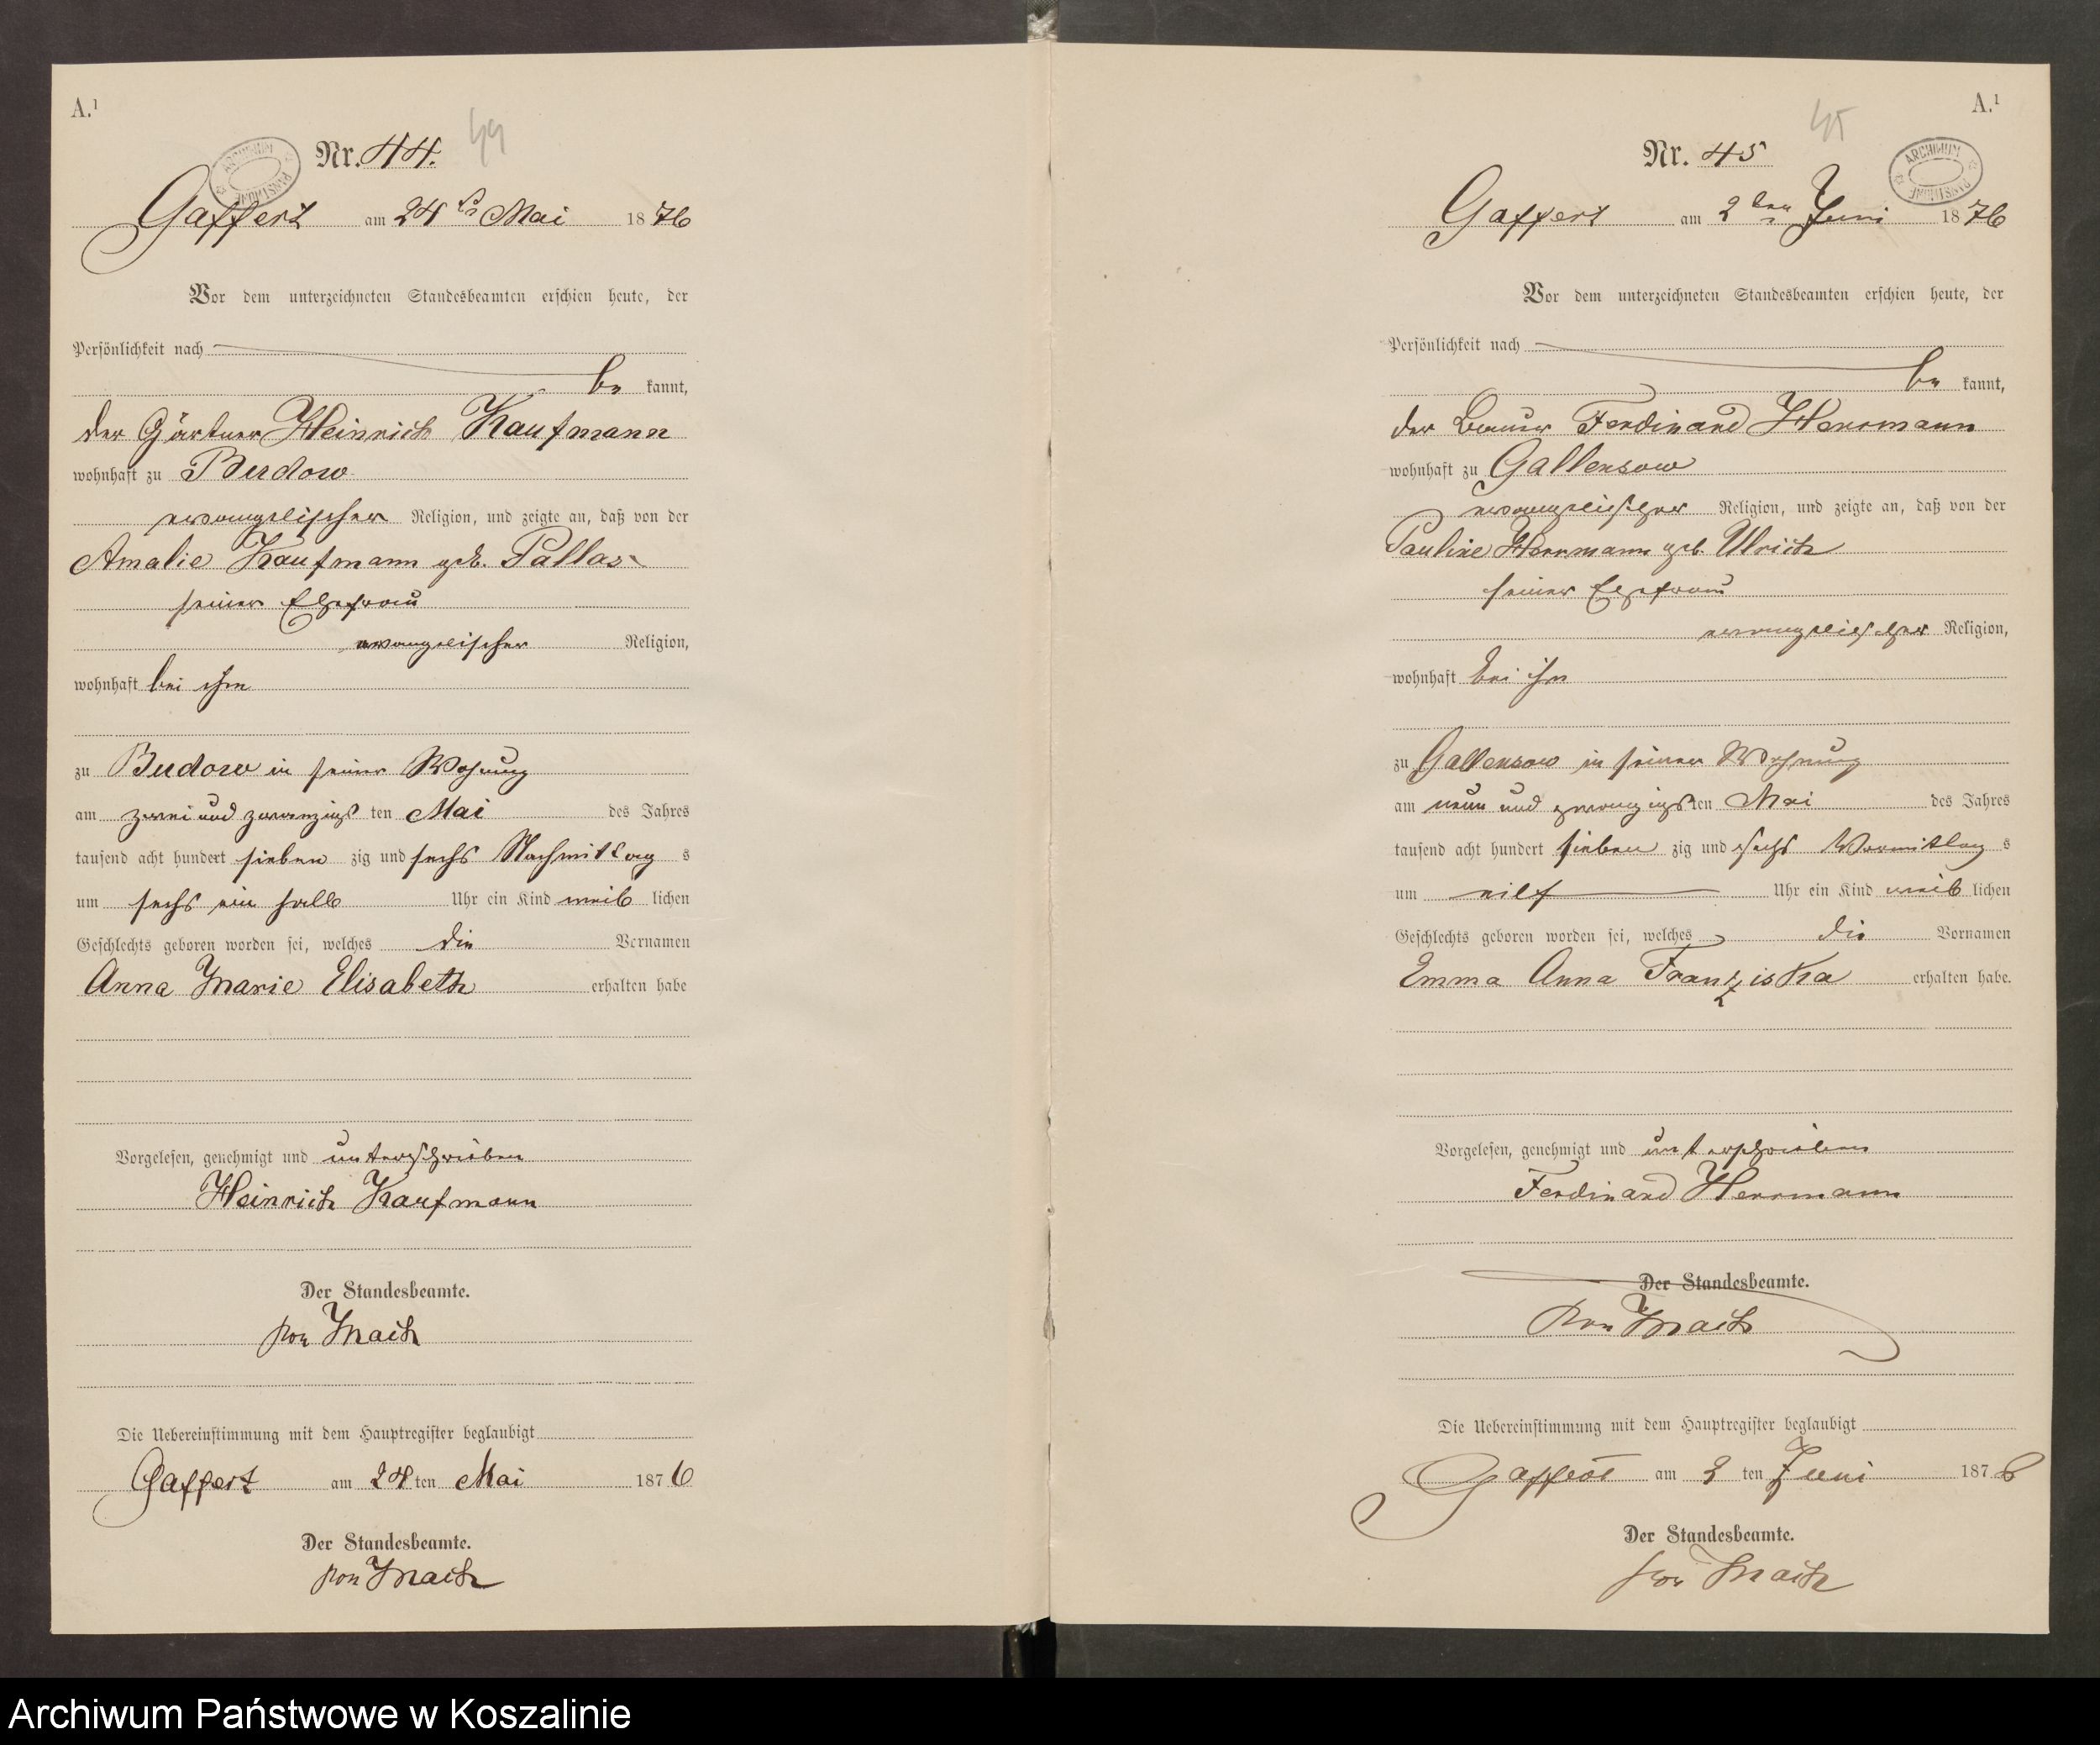 A.¹
Nr. 44. 44
ARCHIWUM PAŃSTWOWE
Gaffert am 24 ts Mai 1876
Vor dem unterzeichneten Standesbeamten erschien heute, der
Persönlichkeit nach
be kannt,
der Gärtner Heinrich Kaufmann
wohnhaft zu Budow
evangelischer Religion, und zeigte an, daß von der
Amalie Kaufmann geb. Pallas
seiner Ehefrau
evangelischer Religion,
wohnhaft bei ihm
zu Budow in seiner Wohnung
am zwei und zwanzigs ten Mai des Jahres
tausend acht hundert sieben zig und sechs Nachmittag s
um sechs ein halb Uhr ein Kind weib lichen
Geschlechts geboren worden sei, welches die Vornamen
Anna Marie Elisabeth erhalten habe
Vorgelesen, genehmigt und unterschrieben
Heinrich Kaufmann
Der Standesbeamte.
von Mach
Die Uebereinstimmung mit dem Hauptregister beglaubigt
Gaffert am 24 ten Mai 1876
Der Standesbeamte.
von Mach
A.¹
Nr. 45 45
ARCHIWUM PAŃSTWOWE
Gaffert am 2 ten Juni 1876
Vor dem unterzeichneten Standesbeamten erschien heute, der
Persönlichkeit nach
be kannt,
der Bauer Ferdinand Herrmann
wohnhaft zu Gallensow
evangelischer Religion, und zeigte an, daß von der
Pauline Herrmann geb. Ulrich
seiner Ehefrau
evangelischer Religion,
wohnhaft bei ihm
zu Gallensow in seiner Wohnung
am neun und zwanzigs ten Mai des Jahres
tausend acht hundert sieben zig und sechs Vormittag s
um eilf Uhr ein Kind weib lichen
Geschlechts geboren worden sei, welches die Vornamen
Emma Anna Franziska erhalten habe.
Vorgelesen, genehmigt und unterschrieben
Ferdinand Herrmann
Der Standesbeamte.
von Mach
Die Uebereinstimmung mit dem Hauptregister beglaubigt
Gaffert am 2 ten Juni 1876
Der Standesbeamte.
von Mach
Archiwum Państwowe w Koszalinie